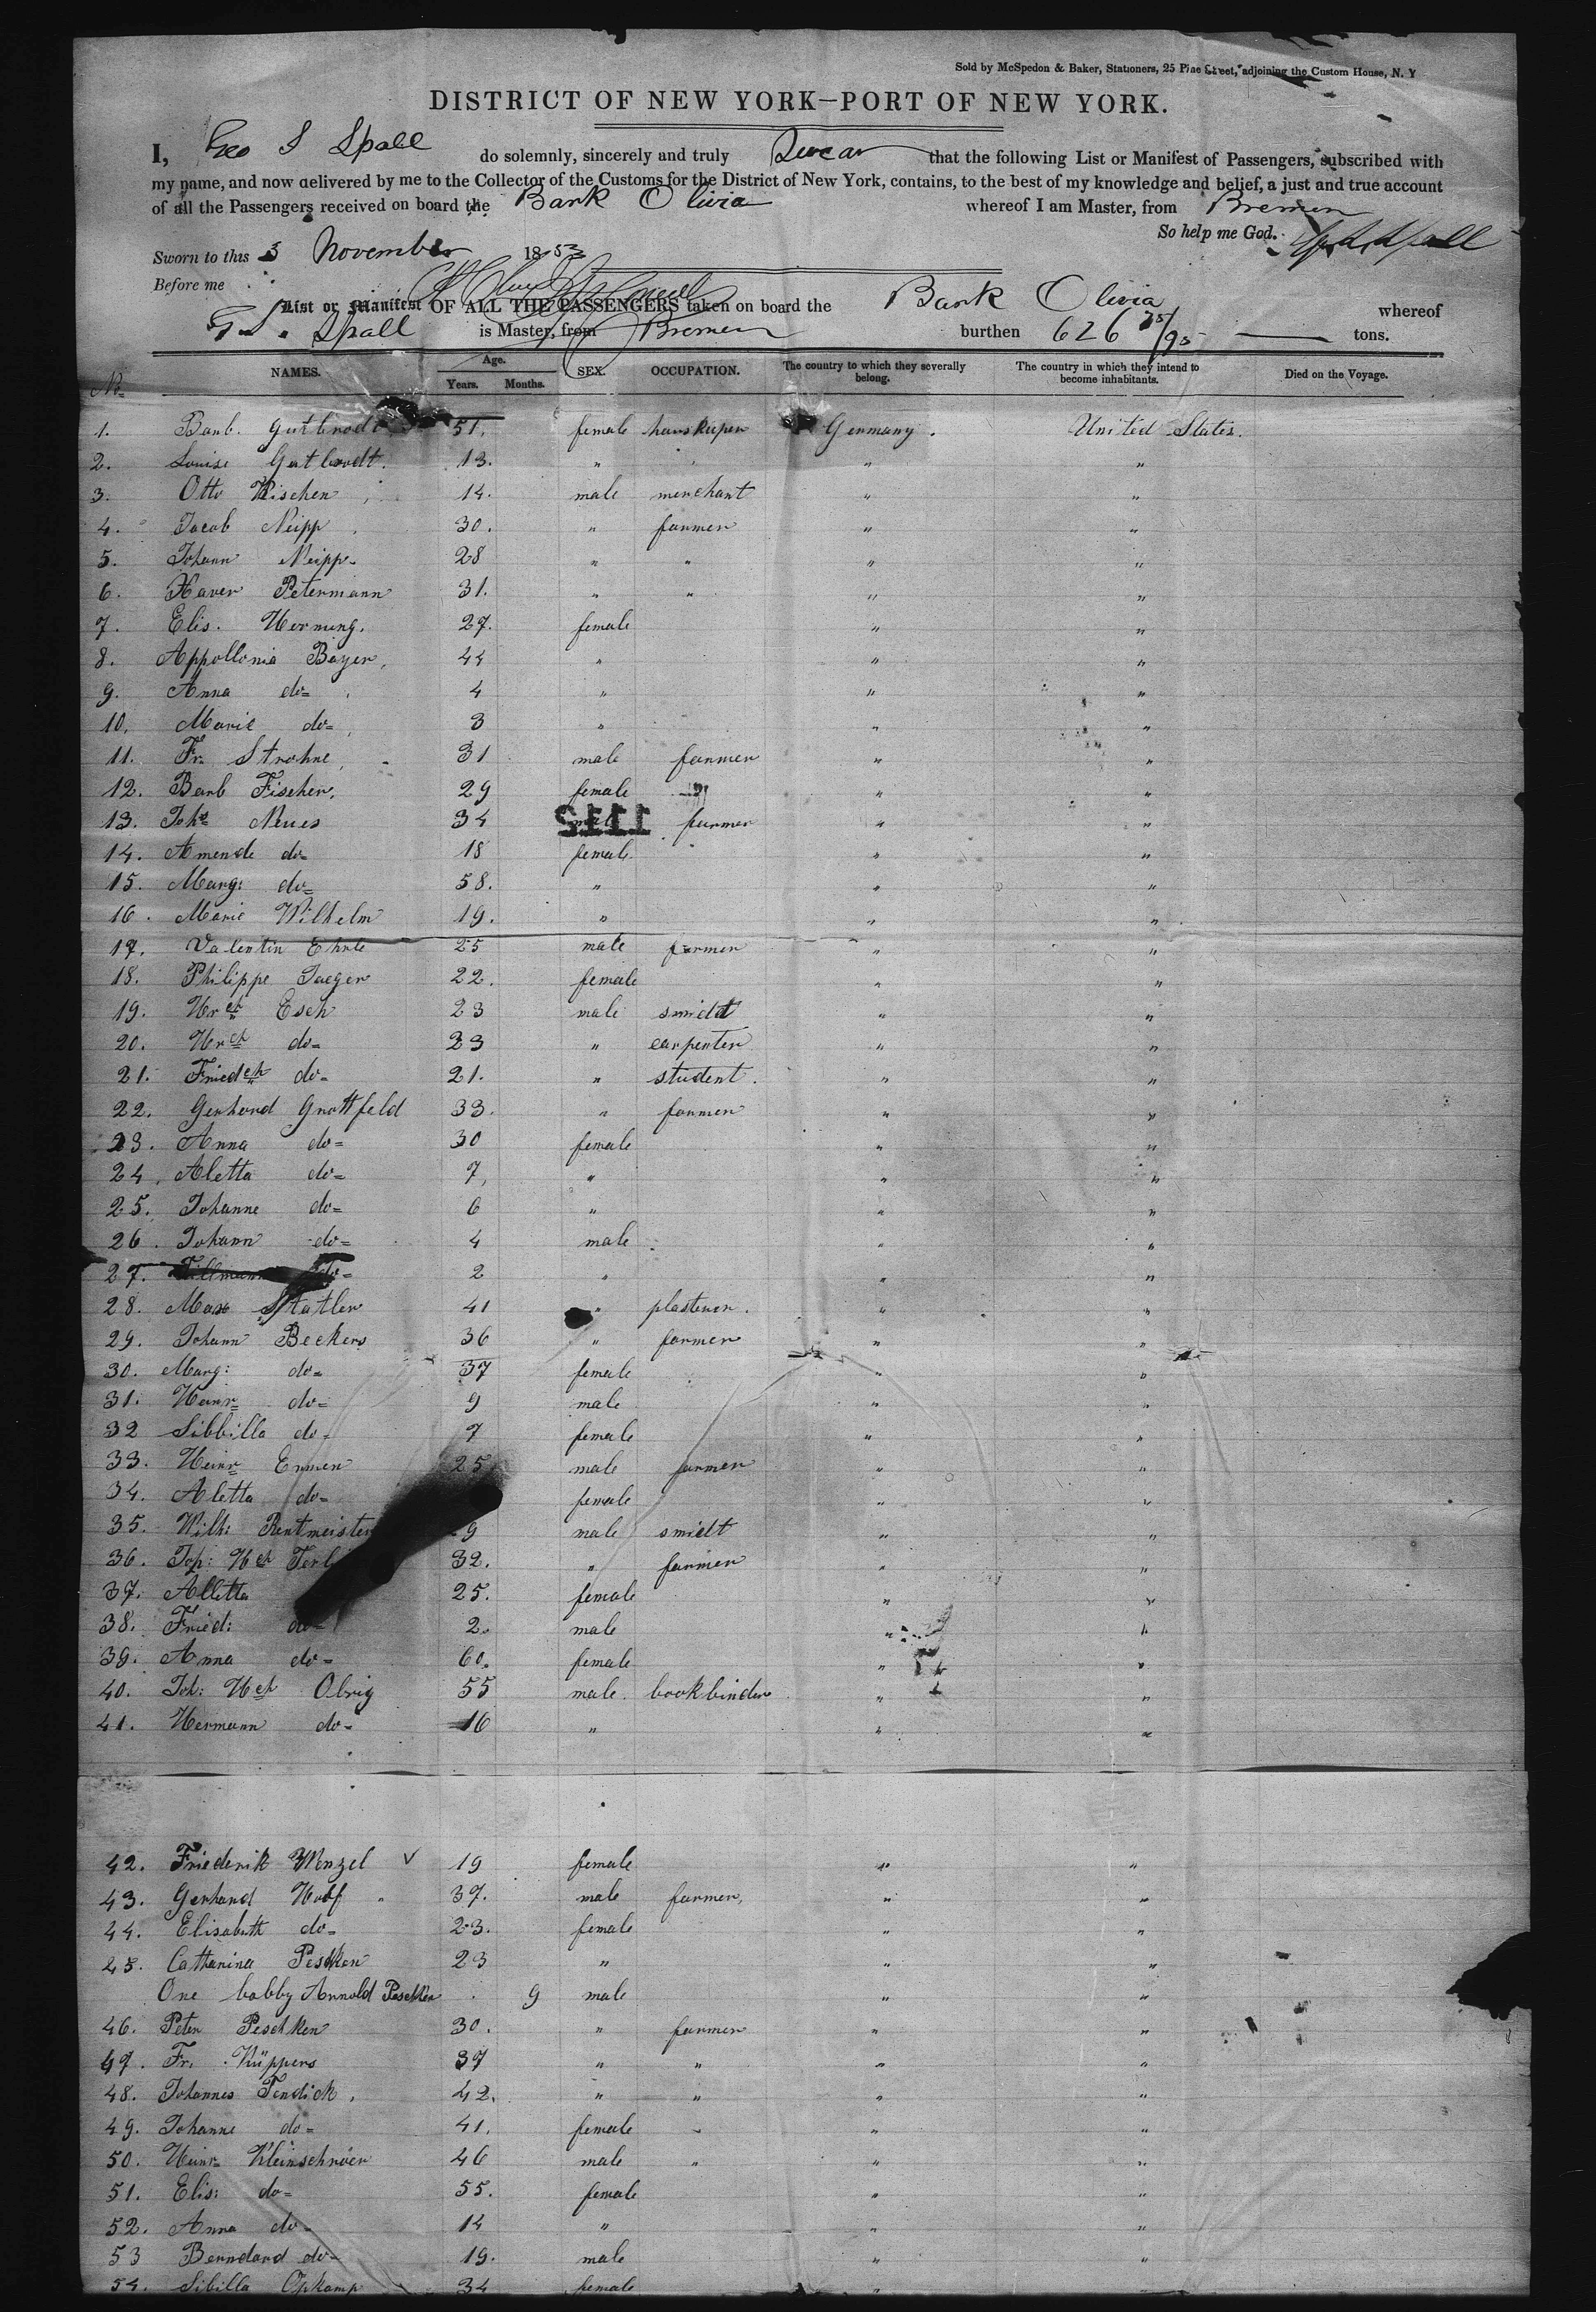 Sold by McSpedon & Baker, Stationers, 25 Pine Street, adjoining the Custom House, N. Y
DISTRICT OF NEW YORK—PORT OF NEW YORK.
I, Geo S Spall do solemnly, sincerely and truly Swear that the following List or Manifest of Passengers, subscribed with
my name, and now delivered by me to the Collector of the Customs for the District of New York, contains, to the best of my knowledge and belief, a just and true account
of all the Passengers received on board the Bark Olivia whereof I am Master, from Bremen
So help me God. Spall
Sworn to this 3 November 1853
Before me
List or Manifest OF ALL THE PASSENGERS taken on board the Bark Olivia whereof
Spall is Master, from Bremen burthen 626 75/95 tons.
No. NAMES. Age. Years. Months. SEX. OCCUPATION. The country to which they severally belong. The country in which they intend to become inhabitants. Died on the Voyage.
1. Barb. Gutbrodt 51. female Germany. United States.
2. Louise Gutbrodt. 13. " " "
3. Otto 14. male merchant " "
4. Jacob Neipp 30. " farmer " "
5. Johann Neipp. 28 " " " "
6. Xaver Petermann 31. " " " "
7. Elis. Hornung. 27. female " "
8. Appollonia Bayer, 44 " " "
9. Anna do= 4 " " "
10. Marie do= 3 " " "
11. Fr. Strohne 31 male farmer " "
12. Barb Fischer. 29 female " "
1112
13. Johs Neues 34 male farmer " "
14. Amende do= 18 female. " "
15. Marg: do= 58. " " "
16. Marie Wilhelm 19. " " "
17. Valentin Ehrle 25 male farmer " "
18. Philippe Jaeger 22. female " "
19. Hrch Esch 23 male smidt " "
20. Hrch do= 23 " carpenter " "
21. Friedch do= 21. " student. " "
22. Gerhard Grottfeld 33. " farmer " "
23. Anna do= 30 female " "
24. Aletta do= 7, " " "
25. Johanne do= 6 " " "
26. Johann do= 4 male " "
27. Tillmann do= 2 " " "
28. Max Statler 41 " plasterer. " "
29. Johann Beckers 36 " farmer " "
30. Marg: do= 37 female " "
31. Heinr= do= 9 male " "
32 Sibbilla do= 7 female " "
33. Heinr= Ermen 25 male farmer " "
34. Aletta do= female " "
35. Wilh: Rentmeister 9 male smidt " "
36. Joh: Hch 32. " farmer " "
37. Alletta 25. female " "
38. Fried: do= 2. male " "
39. Anna do= 60. female " "
40. Joh: Hch Olrig 55 male. bookbinder " "
41. Hermann do= 16 " " "
42. Friederik Menzel v 19 female " "
43. Gerhard Hoff 37. male farmer, " "
44. Elisabeth do= 23. female " "
45. Catharina Peschken 23 " " "
One babby Arnold Peschken 9 male " "
46. Peter Peschken 30. " farmer " "
47. Fr. Küppers 37 " " " "
48. Johannes Tendick. 42. " " " "
49. Johanne do= 41. female " "
50. Heinr= Kleinschröer 46 male " " "
51. Elis: do= 55. female " "
52. Anna do= 14 " " "
53 Berndard do= 19. male " "
54. Sibilla Opkamp 34 female " "